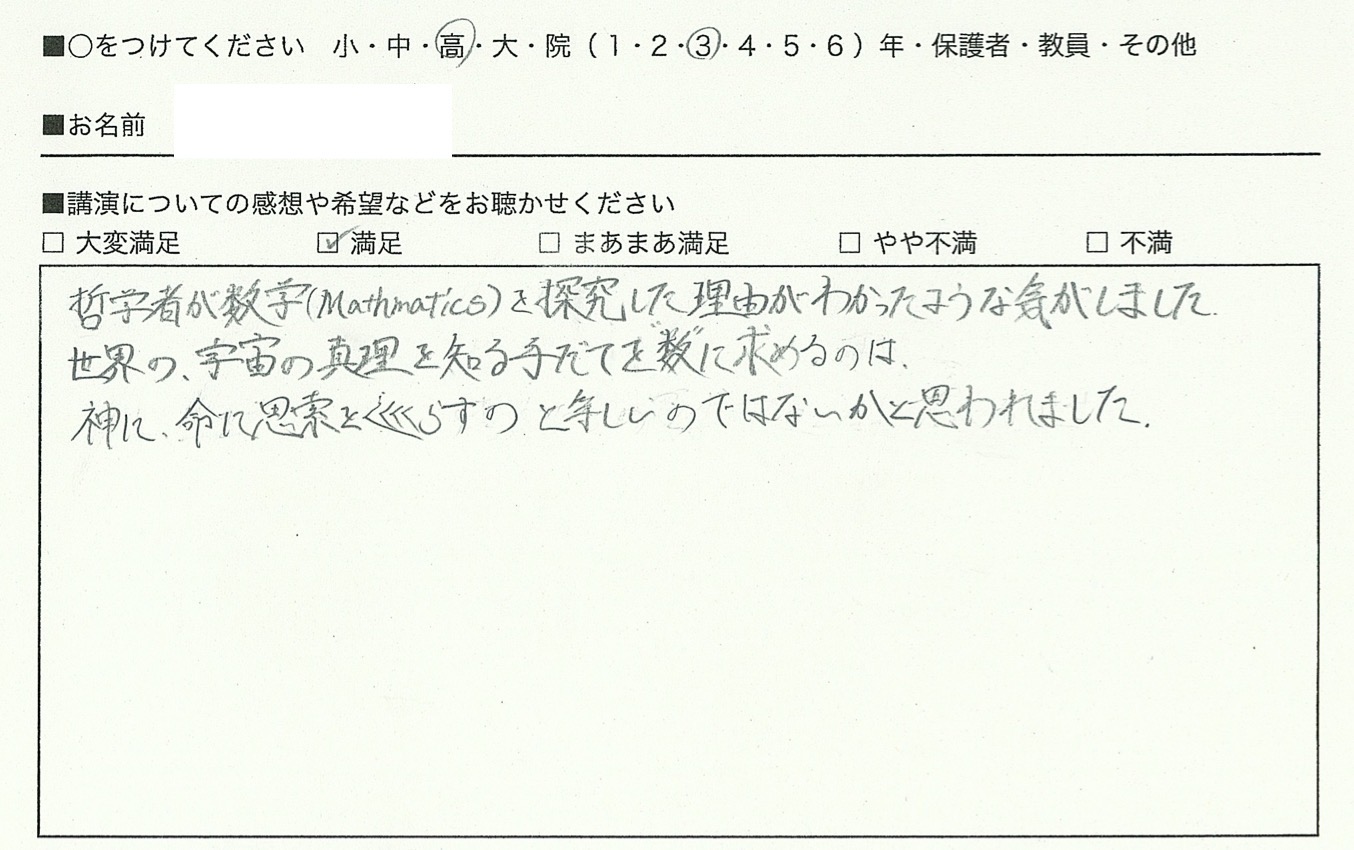 ■○をつけてください 小・中・高・大・院(1・2・3・4・5・6)年・保護者・教員・その他
■お名前
■講演についての感想や希望などをお聴かせください
□ 大変満足 ☑ 満足 □ まあまあ満足 □ やや不満 □ 不満
哲学者が数学(Mathmatics)を探究した理由がわかったような気がしました.
世界の、宇宙の真理を知る手だてを"数"に求めるのは、
神に、命に思索を巡らすのと等しいのではないかと思われました.